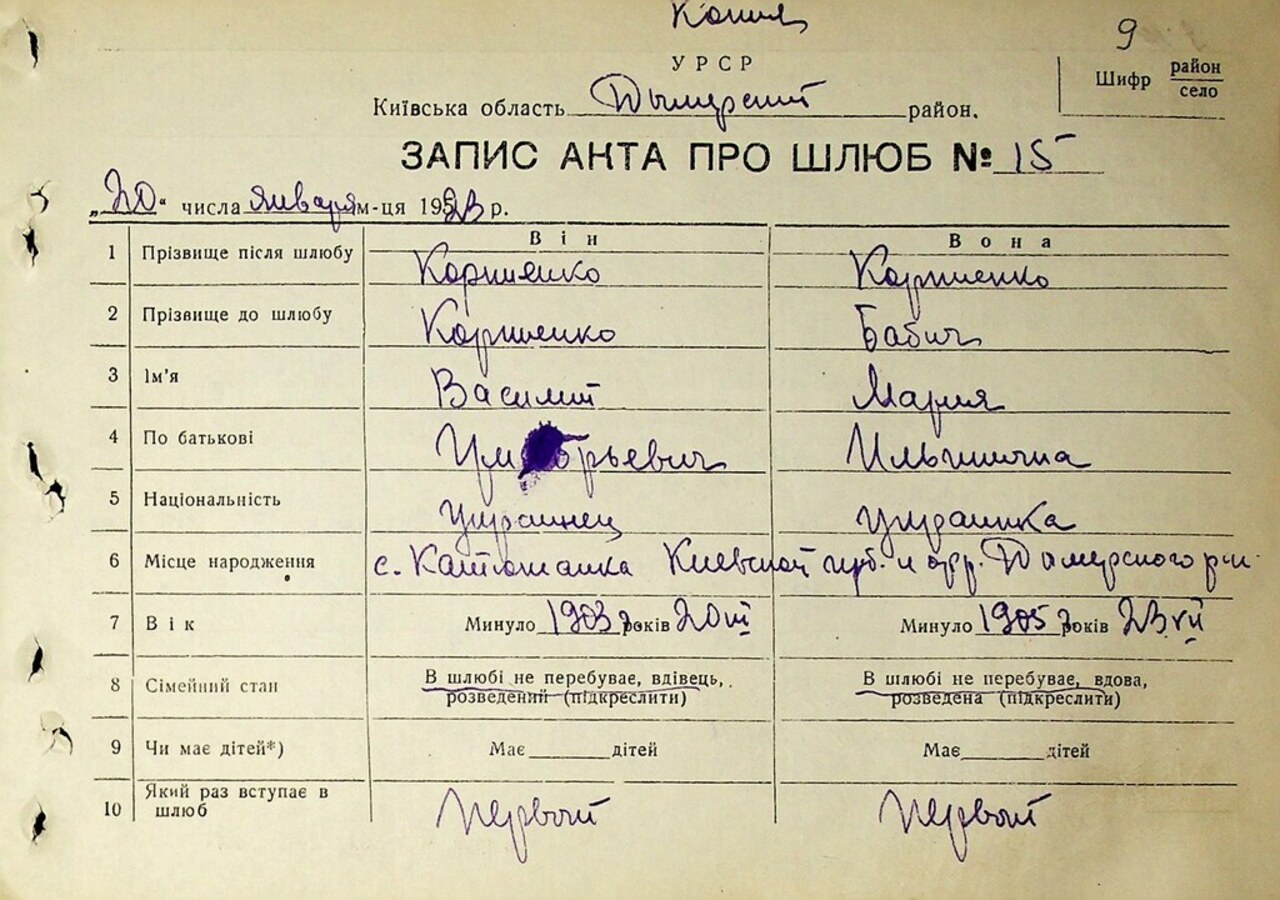 Копия
9
УРСР
Шифр район
село
Київська область Дымерский район.
ЗАПИС АКТА ПРО ШЛЮБ № 15
„20“ числа января м-ця 1923 р.
Він Вона
1 Прізвище після шлюбу Корниенко Корниенко
2 Прізвище до шлюбу Корниенко Бабич
3 Ім'я Василий Мария
4 По батькові Ильинична
5 Національність Украинец украинка
6 Місце народження с. Катюжанка Киевской губ. и окр. Дымерского р-н
7 Вік Минуло 1903 г років 20 III Минуло 1905 г років 23 VII
8 Сімейний стан В шлюбі не перебуває, вдівець, В шлюбі не перебуває, вдова,
розведений (підкреслити) розведена (підкреслити)
9 Чи має дітей*) Має дітей Має дітей
10 Який раз вступає в шлюб первый первый